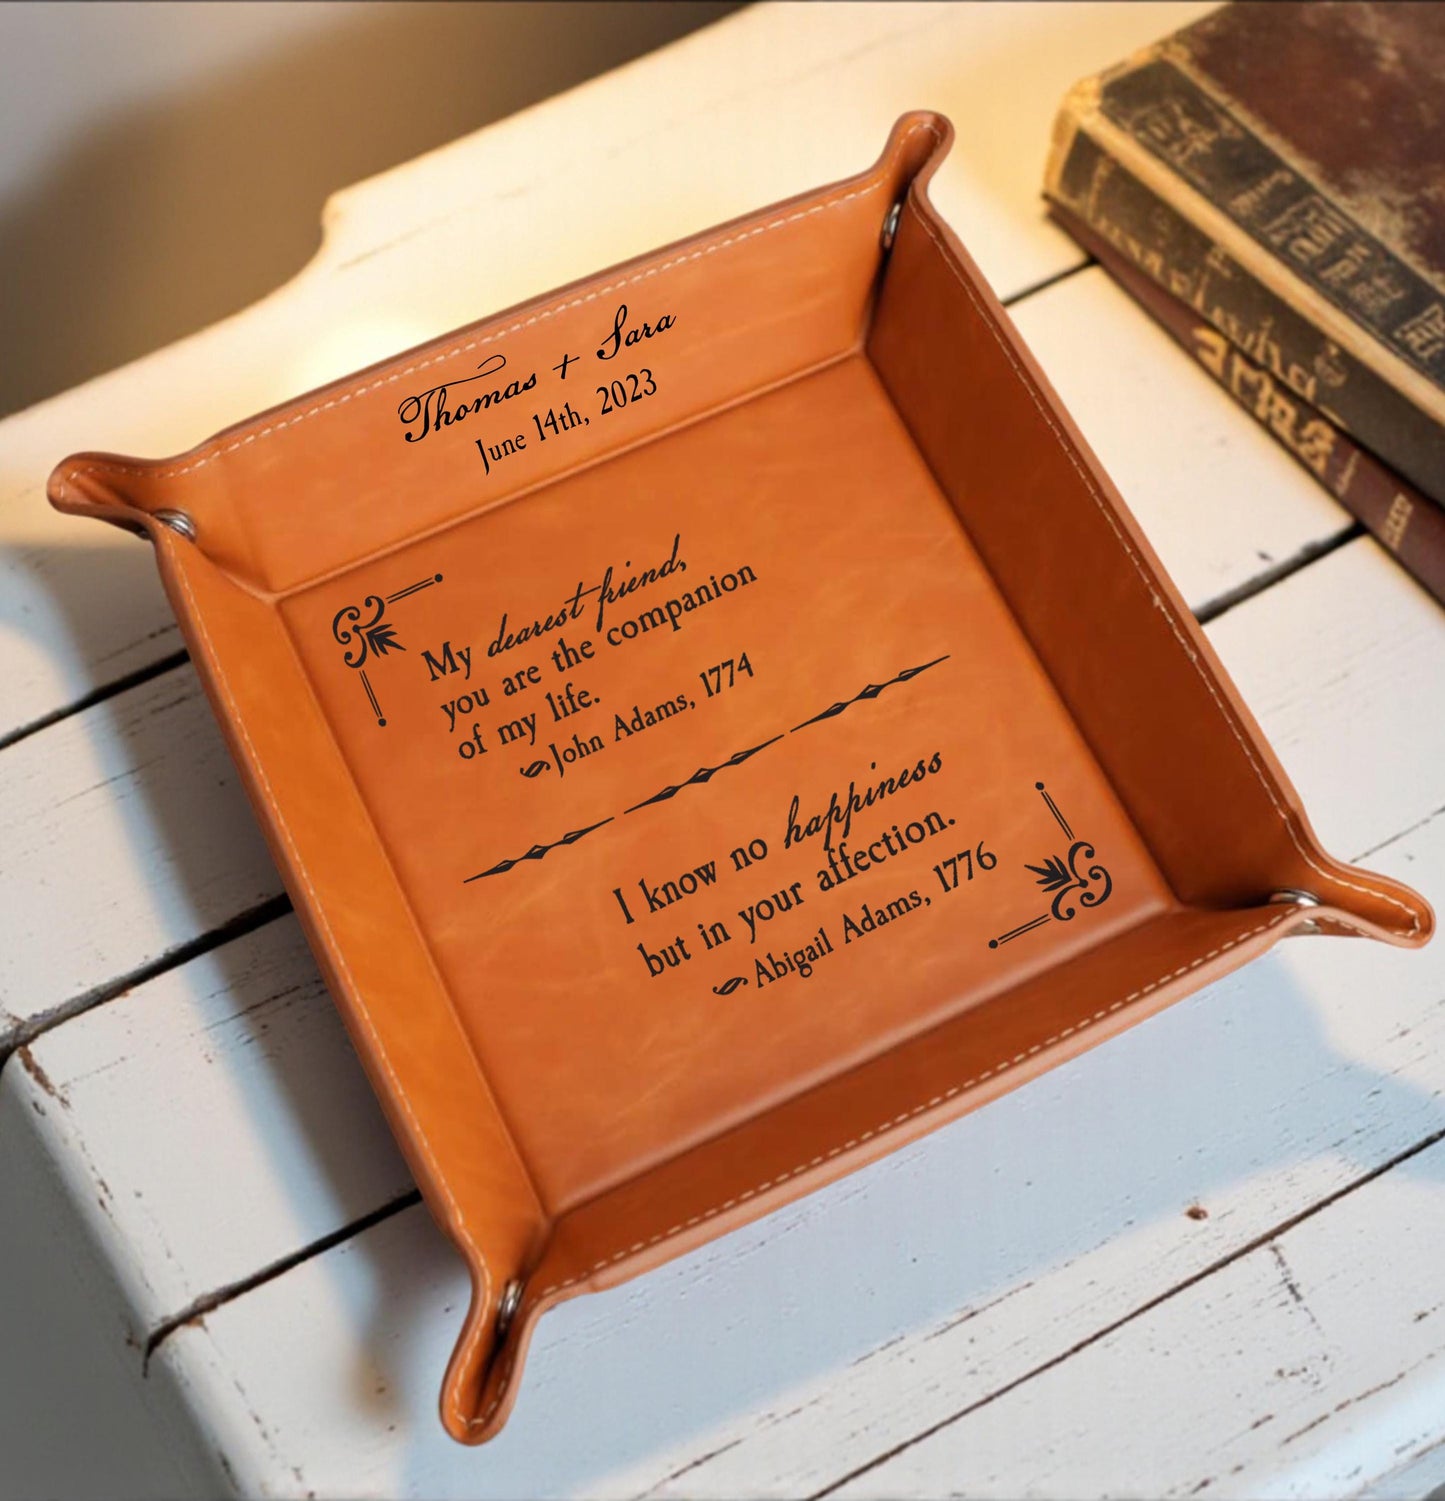 Thomas + Sara
June 14th, 2023
My dearest friend,
you are the companion
of my life.
John Adams, 1774
I know no happiness
but in your affection.
Abigail Adams, 1776